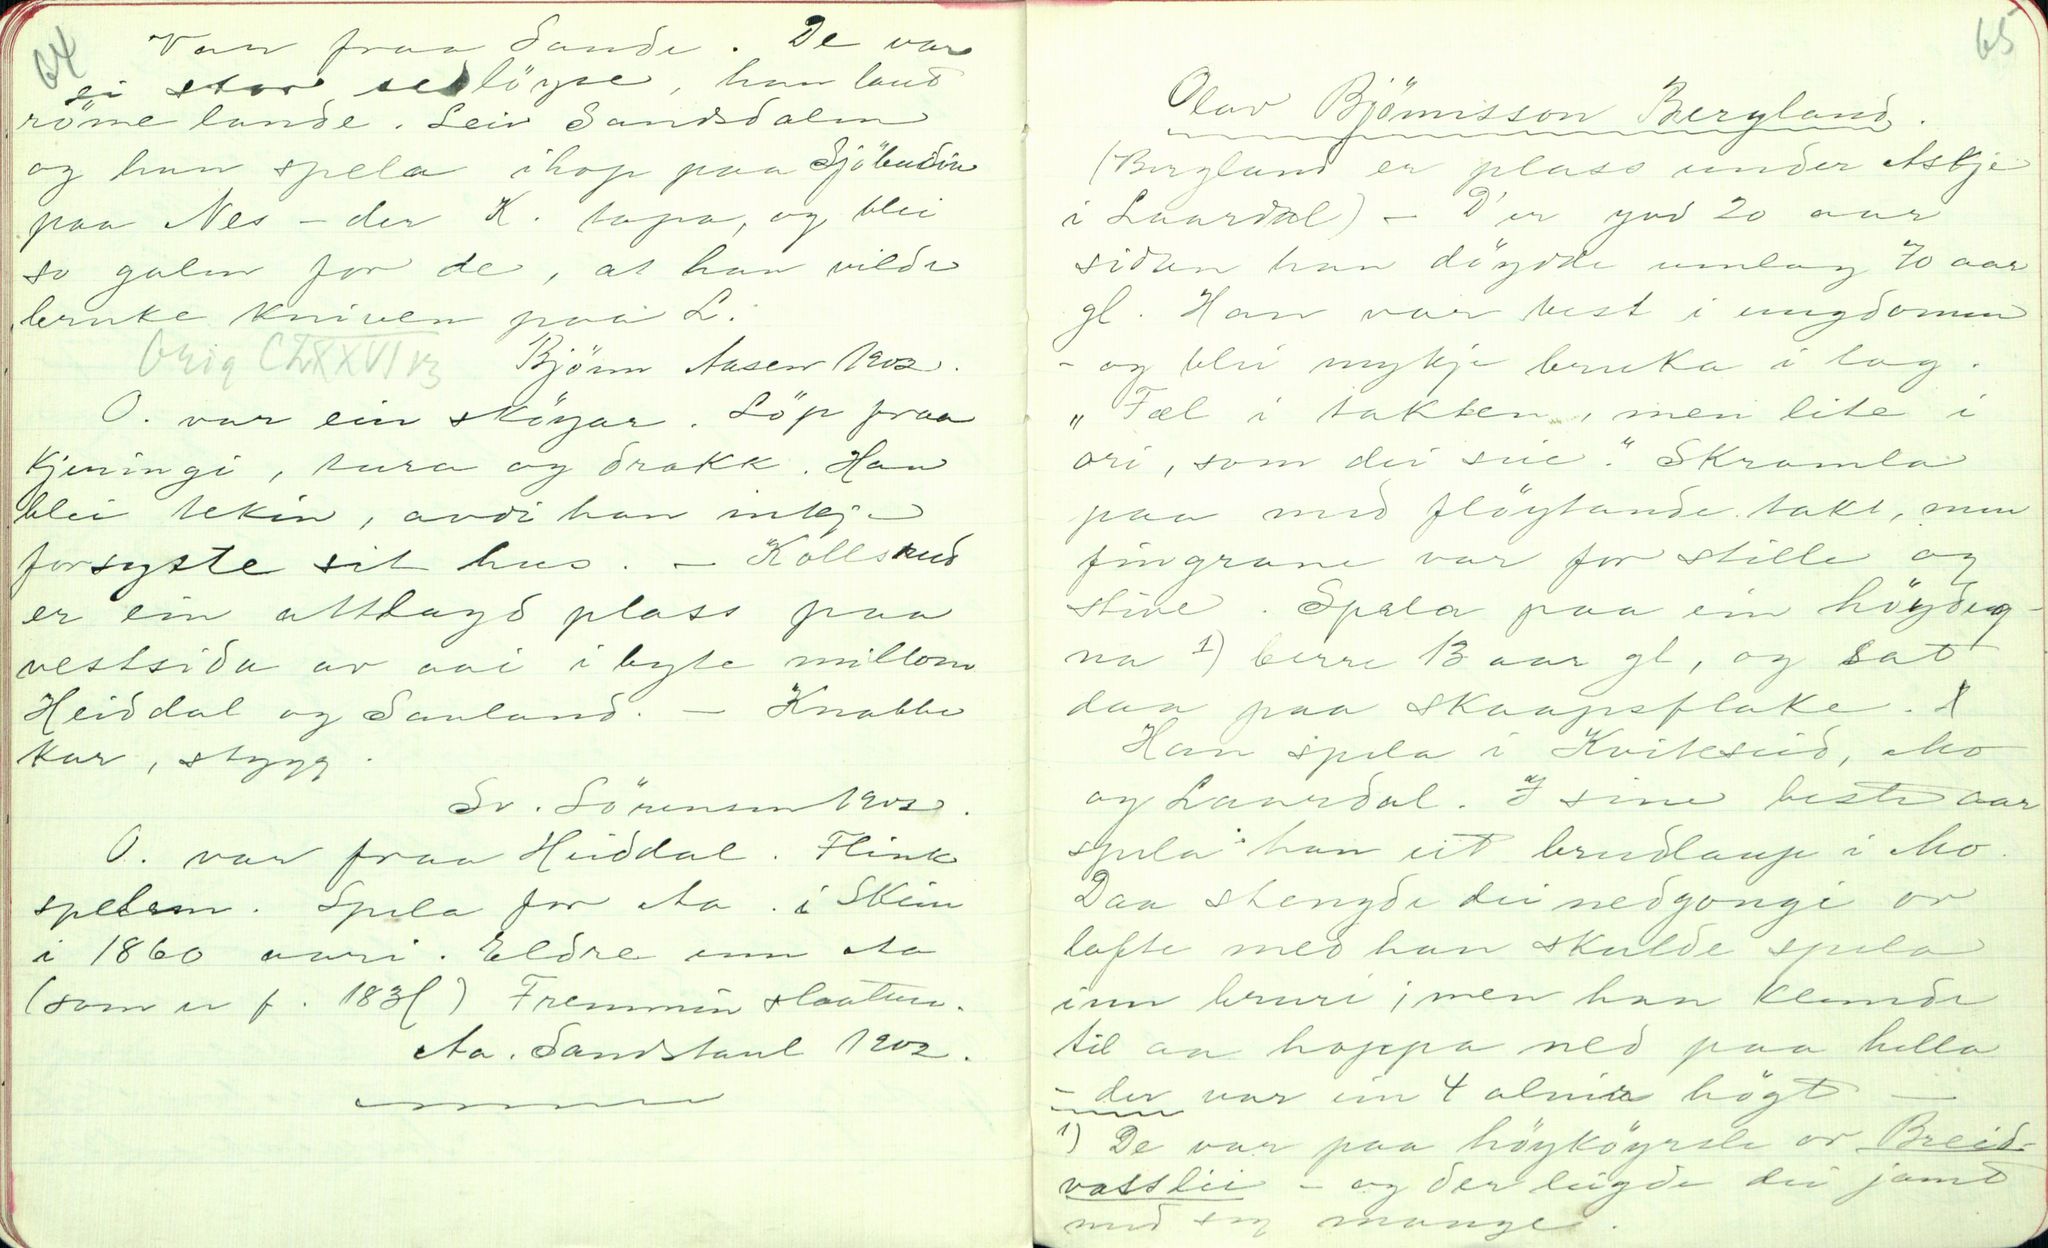 64
Var fraa Sande. De var
ei stor sedløyse, han laut
röme lande. Leiv Sandsdalen
og han spela ihop paa Sjöbudin
paa Nes – der K. tapa, og blei
so galen for de, at han vilde
bruke kniven paa L.
Orig CLXXVI 13 Björn Aasen 1902.
O. var ein sköyar. Löp fraa
kjeringi, tura og drakk. Han
blei tekin, avdi han inkje
forsyste sit hus. – Kollsrud
er ein attlagd plass paa
vestsida av aai i byte millom
Heiddal og Sauland. – Knabbe
kar, stygg.
Sv. Sörensen 1902.
O. var fraa Heiddal. Flink
spelem. Spela for Aa. i Skien
i 1860 aari. Eldre enn Aa
(som er f. 183[) Fremmin slaatten.
Aa. Sandstaul 1902.
65
Olav Björnsson Bergland.
(Bergland er plass under Askje
i Laardal) – D'er god 20 aar
sidan han döydde umlag 70 aar
gl. Han var best i ungdomen
– og blei mykje bruka i lag.
„Fæl i takten, men lite i
ori, som dei sie." Skramla
paa med flöytande takt, men
fingrane var for stille og
stive. Spela paa ein höydeg-
na 1) berre 13 aar gl, og sat
daa paa skaapsflake. X
Han spela i Kvitseid, Mo
og Laurdal. I sine beste aar
spela han eit brudlaup i Mo.
Daa stengde dei nedgongi or
lofte med han skulde spela
inn bruri; men han klemde
til aa hoppa ned paa hella
– der var ein 4 alnir högt –
1) De var paa höyköyrsle or Breid-
vasslii – og der leigde dei jamt
med seg mange.